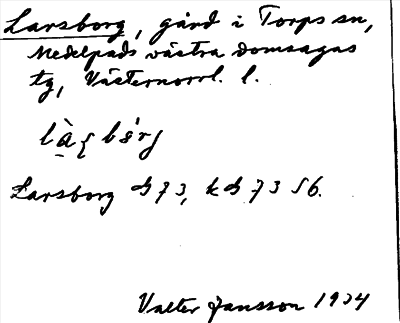 Larsborg, gård i Torps sn,
Medelpads västra domsagas
tg, Västernorrl. l.
Larsborg 73, 73 56.
Valter Jansson 1934